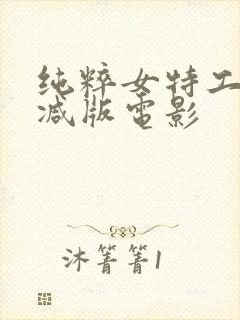 纯粹女特工
减版电影
沐箐箐1